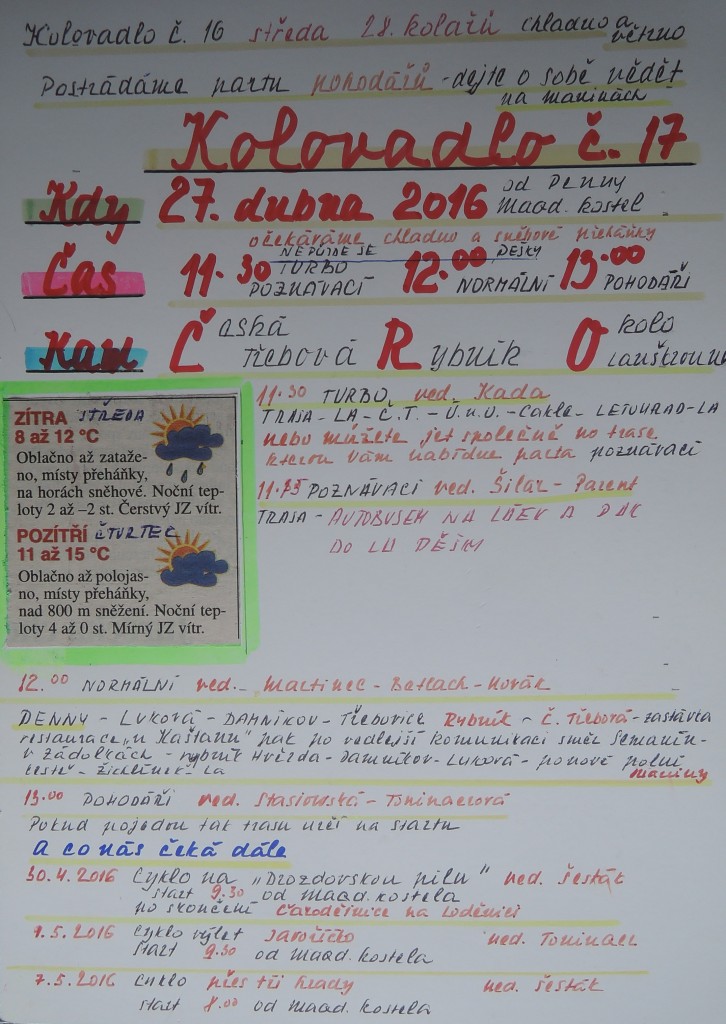 Kolovadlo č. 16 středa 28. kolařů chladno a větrno
Postrádáme partu pohodářů - dejte o sobě vědět
na mařinách
Kolovadlo č. 17
Kdy 27. dubna 2016 od DENNY
Maod. kostel
očekáváme chladno a sněhové přeháňky
NEPOJEDE SE DĚŠKY
Čas 11.30 TURBO POZNÁVACÍ 12.00 NORMÁLNÍ 13.00 POHODÁŘI
Kam Česká Třebová Rybník Okolo Lanškrouna
ZÍTRA STŘEDA
8 až 12 °C
Oblačno až zataže-
no, místy přeháňky,
na horách sněhové. Noční tep-
loty 2 až –2 st. Čerstvý JZ vítr.
POZÍTŘÍ ČTVRTEC
11 až 15 °C
Oblačno až polojas-
no, místy přeháňky,
nad 800 m sněžení. Noční tep-
loty 4 až 0 st. Mírný JZ vítr.
11.30 TURBO ved. Kada
TRASA - LA - Č.T. - Ú.n.O. - Cakle - LETOHRAD - LA
nebo můžete jet společně po trase
kterou vám nabídne parta poznávací
POZNÁVACÍ ved. Šilar - Parent
TRASA - AUTOBUSEM NA A PAK
DO LA
12.00 NORMÁLNÍ ved. Martinec - Betlach - Novák
DENNY - LUKOVÁ - DAMNÍKOV - Třebovice Rybník - Č. Třebová - zastávka
restaurace „u Kaštanu" pak po vedlejší komunikaci směr Semanín -
v zádolkách - rybník Hvězda - Damníkov - Luková - po nové polní
cestě - Žichlínek - La
13.00 POHODÁŘI ved. Stasiowská - Toninaerová
Pokud pojedou tak trasu určí na startu
A co nás čeká dále
30.4.2016 Cyklo na „Drozdovskou pilu" ved. šesták
start 9.30 od maod. kostela
po skončení Čarodějnice na loděnici
1.5.2016 Cyklo výlet Javoříčko ved. Toninaer
start 9.30 od maod. kostela
7.5.2016 Cyklo přes tři hrady ved. šesták
start 8.00 od maod. kostela